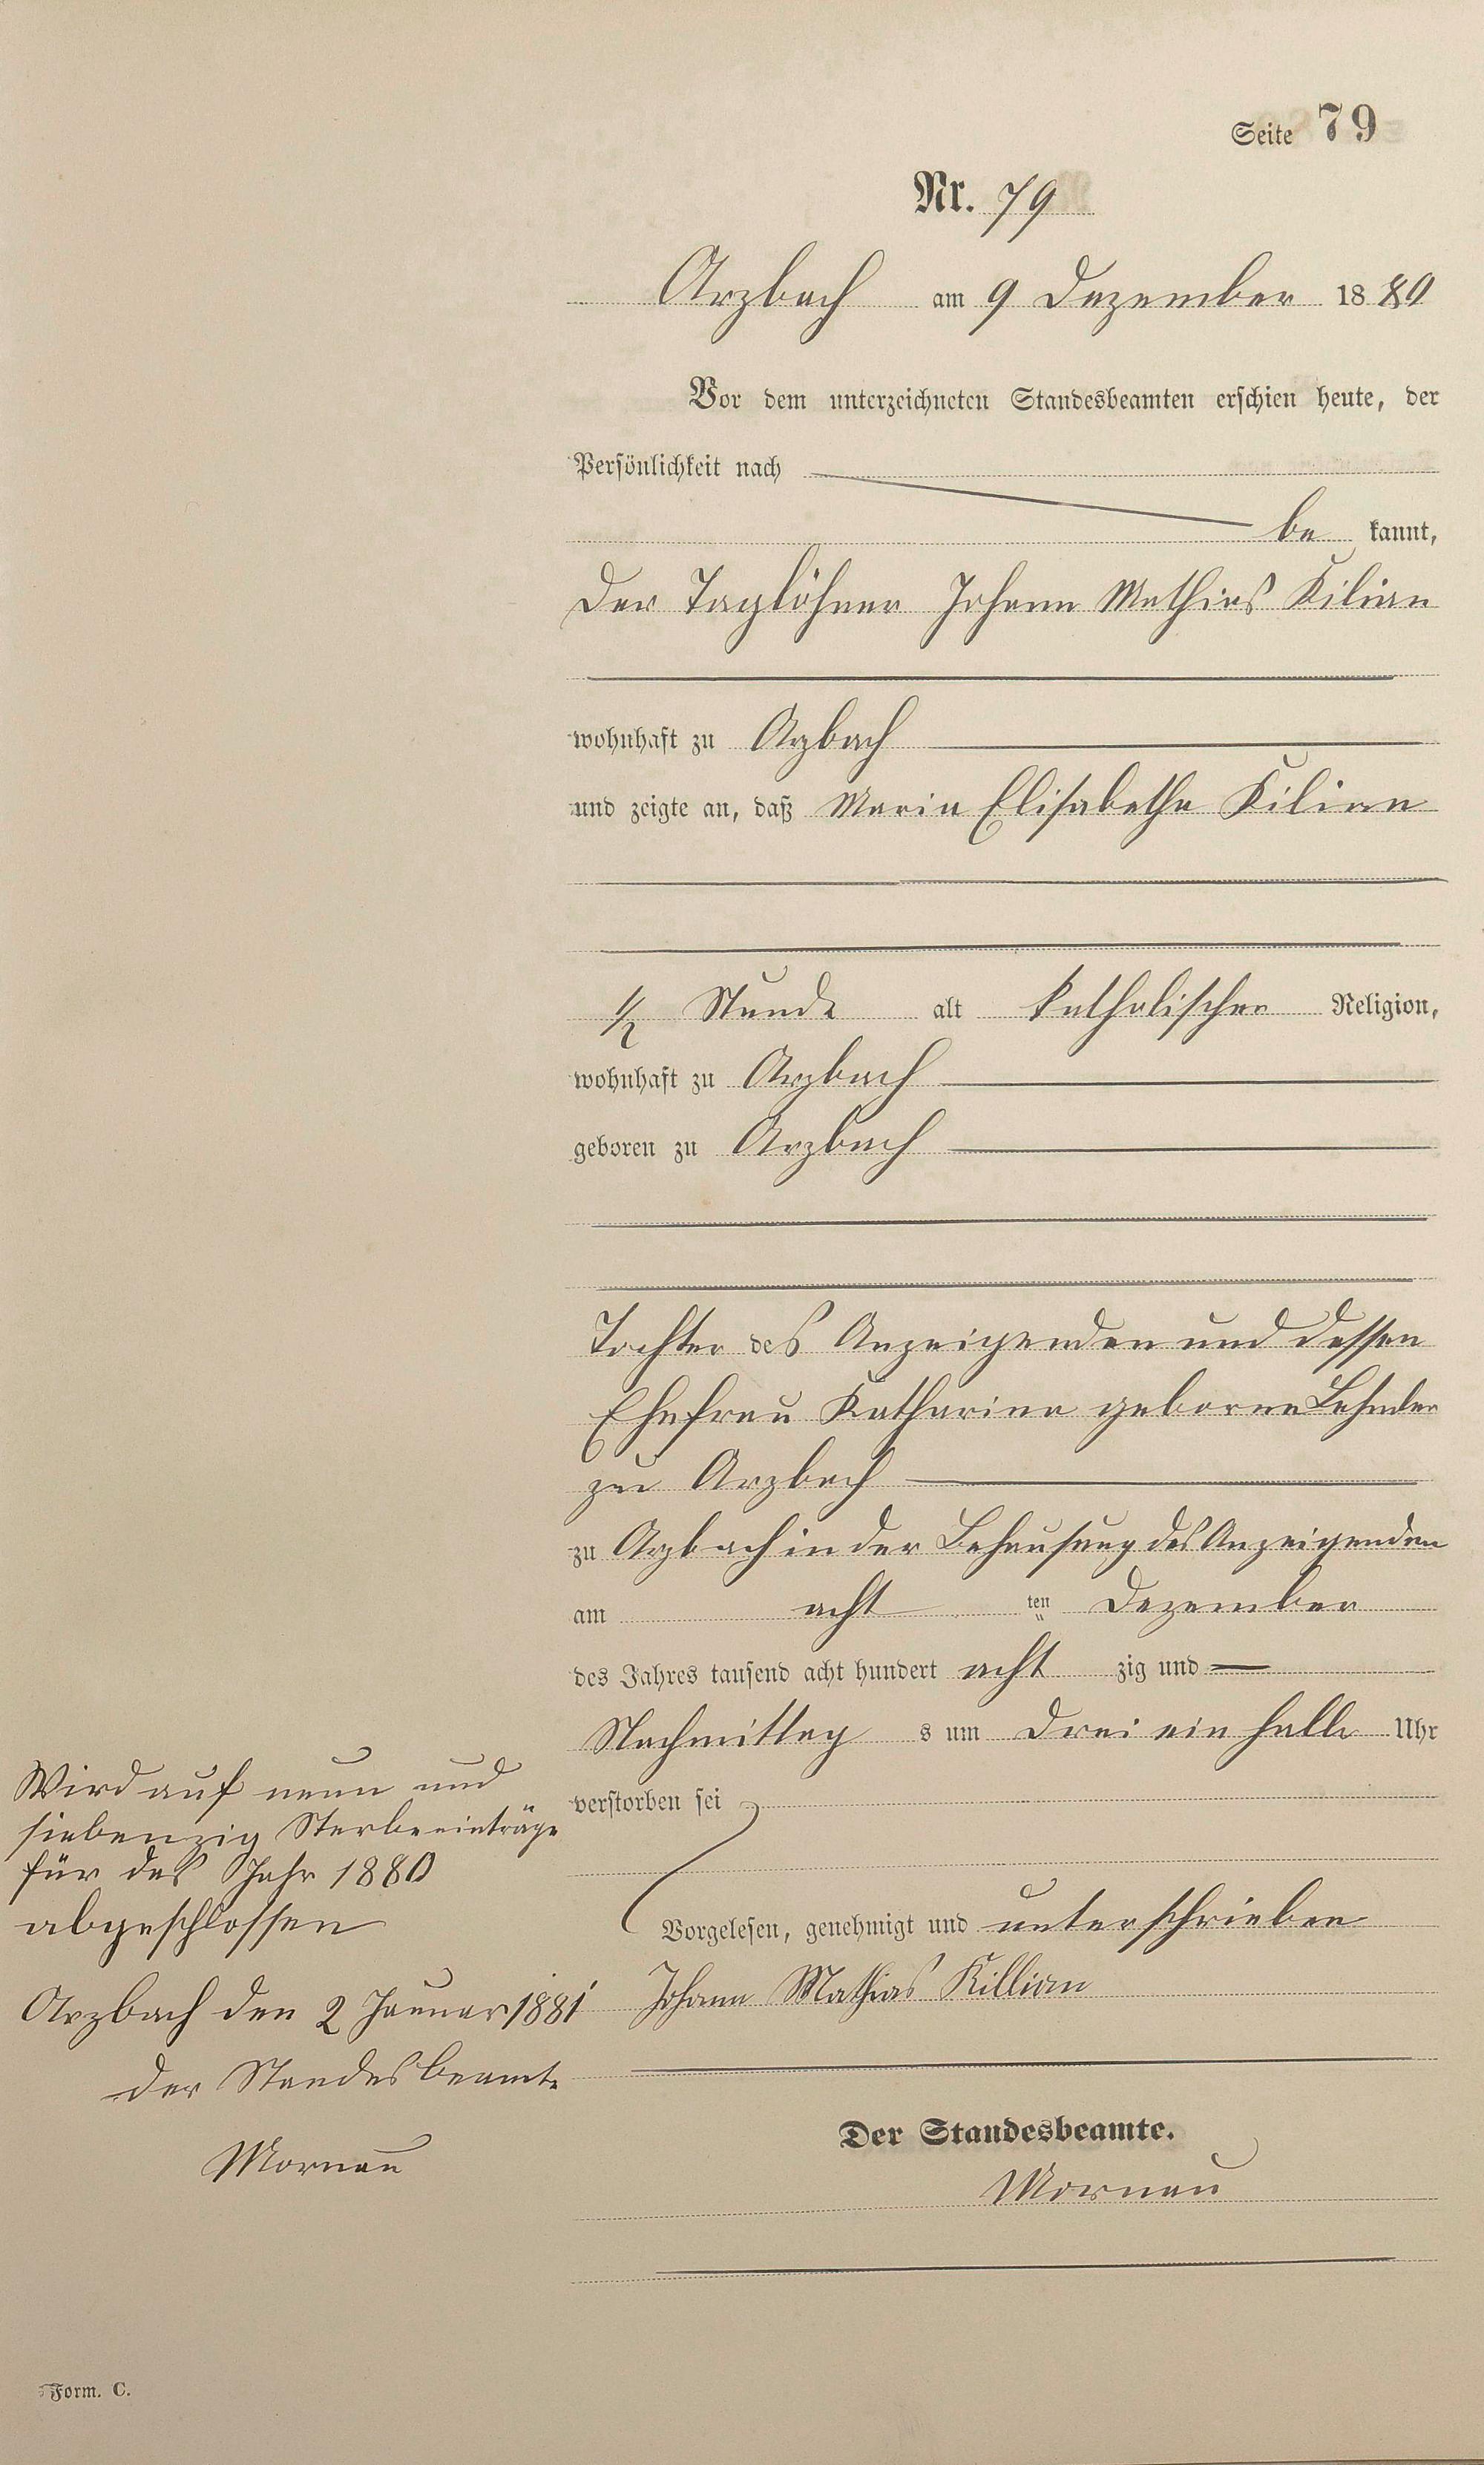 Seite 79
Nr. 79
Arzbach am 9 Dezember 1880
Vor dem unterzeichneten Standesbeamten erschien heute, der
Persönlichkeit nach
be kannt,
der Taglöhner Johann Mathias Kilian
wohnhaft zu Arzbach
und zeigte an, daß Maria Elisabetha Kilian
1/2 Stunde alt katholischer Religion,
wohnhaft zu Arzbach
geboren zu Arzbach
Tochter des Anzeigenden und dessen
Ehefrau Katharina geborne Lehnder
zu Arzbach
zu Arzbach in der Behausung des Anzeigenden
am acht ten Dezember
des Jahres tausend acht hundert acht zig und
Nachmittag s um drei ein halb Uhr
verstorben sei
Vorgelesen, genehmigt und unterschrieben
Johann Mathias Killian
Der Standesbeamte.
Mornau
Wird auf neun und
siebenzig Sterbeeinträge
für das Jahr 1880
abgeschlossen
Arzbach den 2 Januar 1881
der Standesbeamte
Mornau
Form. C.